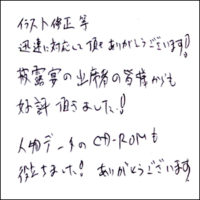 イラスト修正等
迅速に対応して頂きありがとうございます!
披露宴の出席者の皆様からも
好評頂きました!
人物データのCD-ROMも
役立ちました! ありがとうございます!